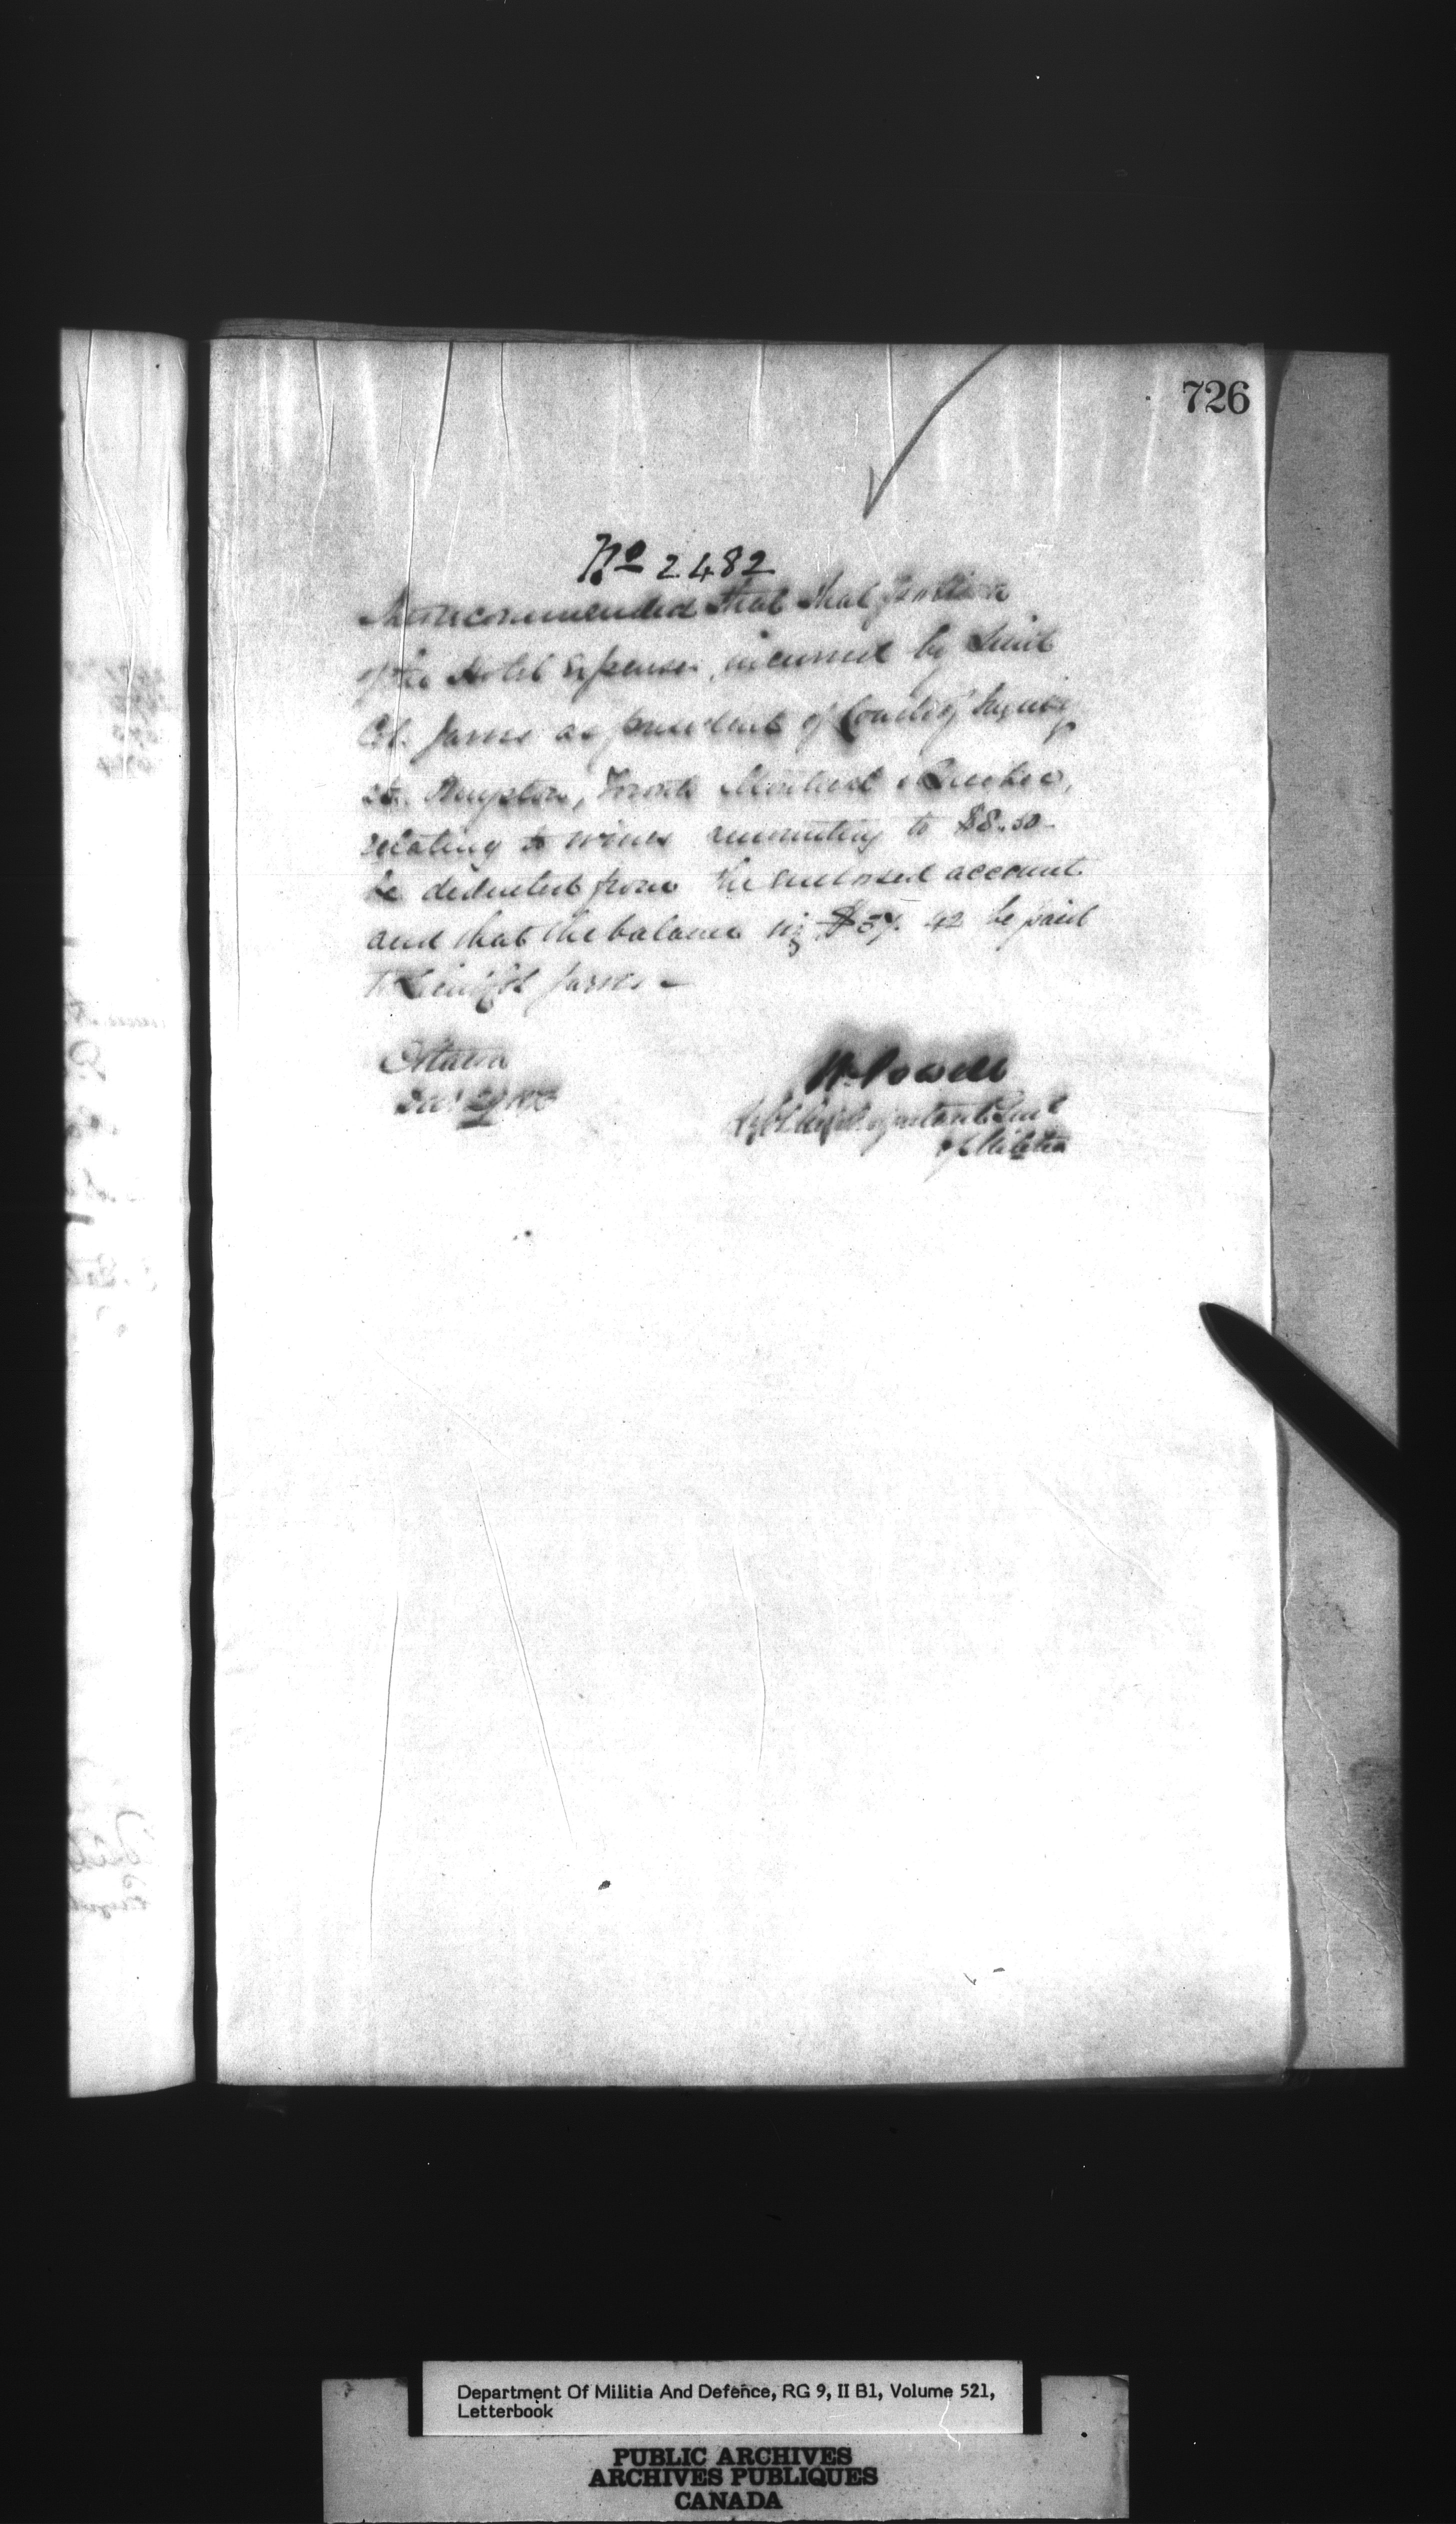 726
No 2482
recommended that that portion
of the Hotel Expenses, incurred by Lieut
Col. Jarvis as president of Court of Inquiry
at Kingston, Toronto Montreal & Quebec,
relating to wines amounting to $8.50
be deducted from the enclosed account
and that the balance viz $ 42 be paid
to Lieut Col Jarvis -
Ottawa
W. Powell
of Militia
Department Of Militia And Defence, RG 9, II B1, Volume 521,
Letterbook
PUBLIC ARCHIVES
ARCHIVES PUBLIQUES
CANADA